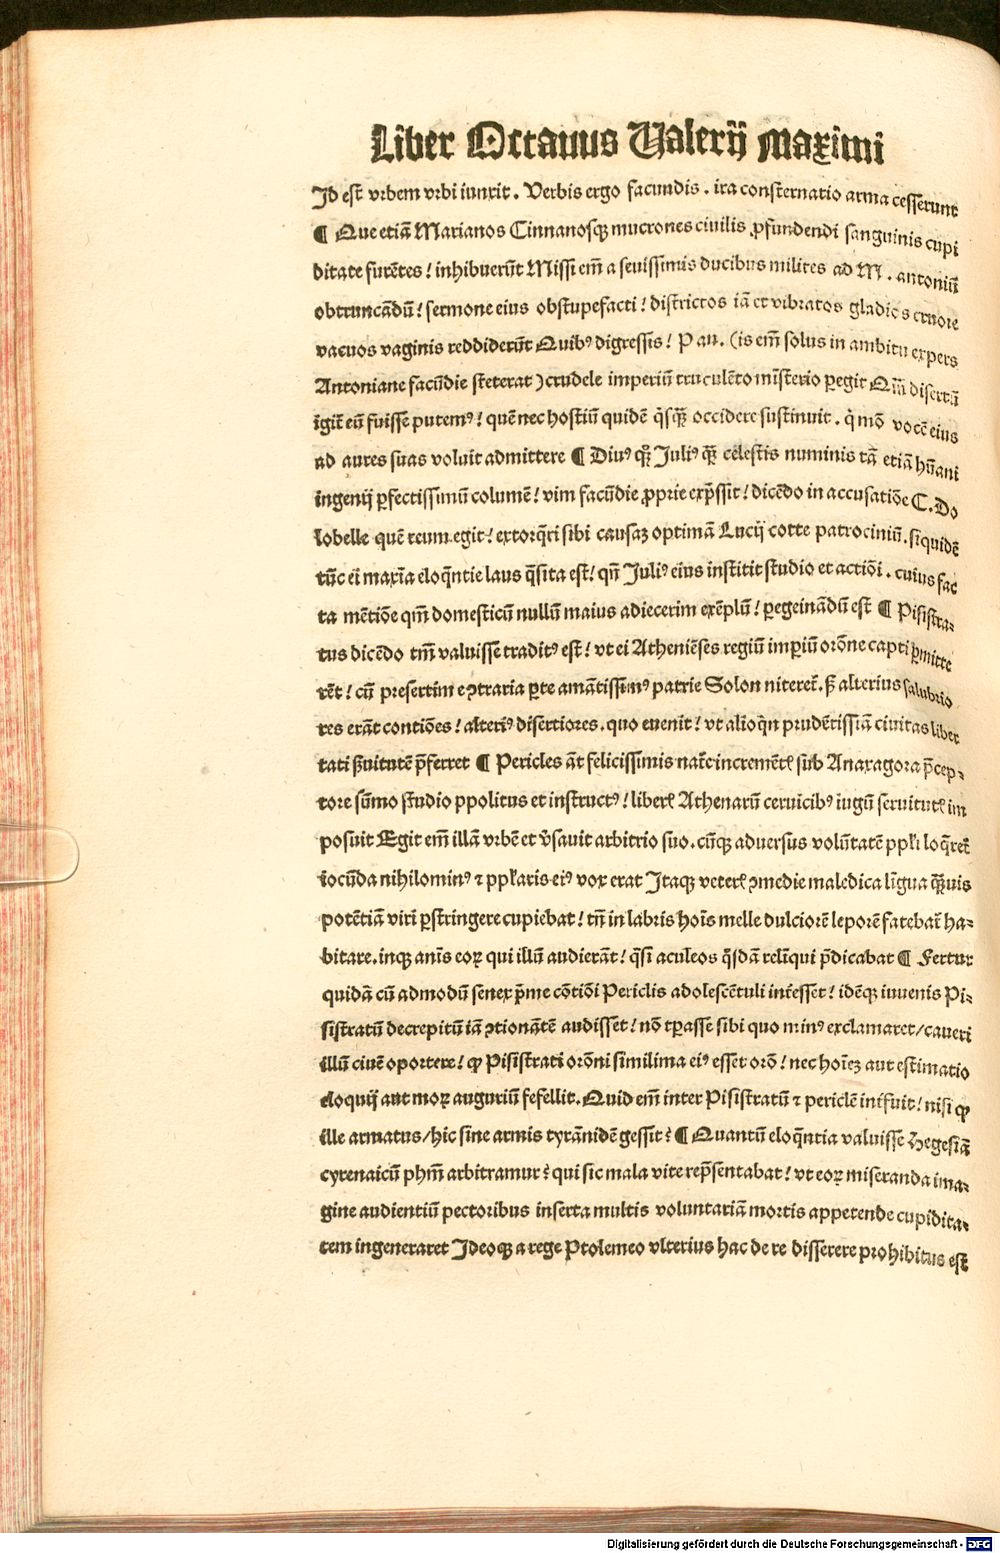 Liber Octauus Ualerij Maximi
Id est vrbem vrbi iunxit. Verbis ergo facundis. ira consternatio arma cesserunt
¶ Que etiā Marianos Cinnanosqꝫ mucrones ciuilis ꝓfundendi sanguinis cupi
ditate furētes! inhibuerūt Missi em̄ a seuissimis ducibus milites ad M. antoniū
obtruncādū! sermone eius obstupefacti! districtos iā et vibratos gladios cruore
vacuos vaginis reddiderūt Quibꝰ digressis! P an. (is em̄ solus in ambitu expers
Antoniane facūdie steterat) crudele imperiū truculēto mīsterio ꝑegit Qm̄ disertū
igit̄ eū fuisse putemꝰ! quē nec hostiū quidē q̄sqꝫ̄ occidere sustinuit. q̄ mō vocē eius
ad aures suas voluit admittere ¶ Diuꝰ qꝫ̄ Juliꝰ qꝫ̄ celestis numinis tā etiā hūani
ingenij ꝑfectissimū columē! vim facūdie ꝓprie exp̄ssit! dicēdo in accusatiōe C. Do
lobelle quē reum egit! extorq̄ri sibi causaꝫ optimā Lucij cotte patrociniū. siquidē
tūc ei maxīa eloq̄ntie laus q̄sita est! qn̄ Juliꝰ eius institit studio et actiōi. cuius fac
ta mētiōe qm̄ domesticū nullū maius adiecerim exēplū! ꝑegrinādū est ¶ Pisistra-
tus dicēdo tm̄ valuisse traditꝰ est! vt ei Atheniēses regiū imꝑiū orōne capti ꝑmitte
rēt! cū presertim eꝯtraria ꝑte amātissimꝰ patrie Solon niteret̄. sꝫ alterius salubrio
res erāt contiōes! alteriꝰ disertiores. quo euenit! vt alioq̄n prudētissiā ciuitas liber
tati ẜuitutē p̄ferret ¶ Pericles āt felicissimis nat̄e incremētꝭ sub Anaxagora p̄cep-
tore sūmo studio ppolitus et instructꝰ! liberꝭ Athenarū ceruicibꝰ iugū seruitutꝭ im
posuit Egit em̄ illā vrbē et v̄sauit arbitrio suo. cūqꝫ aduersus volūtatē ppłi loq̄ret̄
iocūda nihilominꝰ ⁊ ppłaris eiꝰ vox erat Itaqꝫ veterꝭ ꝯmedie maledica līgua qꝫ̄uis
potētiā viri ꝑstringere cupiebat! tn̄ in labris hoīs melle dulciorē leporē fatebat̄ ha-
bitare. inqꝫ anīs eoꝝ qui illū audierāt! q̄si aculeos q̄sdā relīqui p̄dicabat ¶ Fertur
quidā cū admodū senex p̄me cōtiōi Periclis adolescētuli int̄esset! idēqꝫ iuuenis Pi-
sistratū decrepitū iā ꝯtionātē audisset! nō tꝑasse sibi quo minꝰ exclamaret/caueri
illū ciuē oportere! ꝙ Pisistrati orōni similima eiꝰ esset orō! nec hoīeꝫ aut estimatio
eloquij aut moꝝ auguriū fefellit. Quid em̄ inter Pisistratū ⁊ periclē int̄fuit! nisi ꝙ
ille armatus/hic sine armis tyrānidē gessit? ¶ Quantū eloq̄ntia valuisse Hegesiā
cyrenaicū phm̄ arbitramur? qui sic mala vite rep̄sentabat! vt eoꝝ miseranda ima-
gine audientiū pectoribus inserta multis voluntariā mortis appetende cupidita-
tem ingeneraret Ideoqꝫ a rege Ptolemeo vlterius hac de re disserere prohibitus est
Digitalisierung gefördert durch die Deutsche Forschungsgemeinschaft - DFG